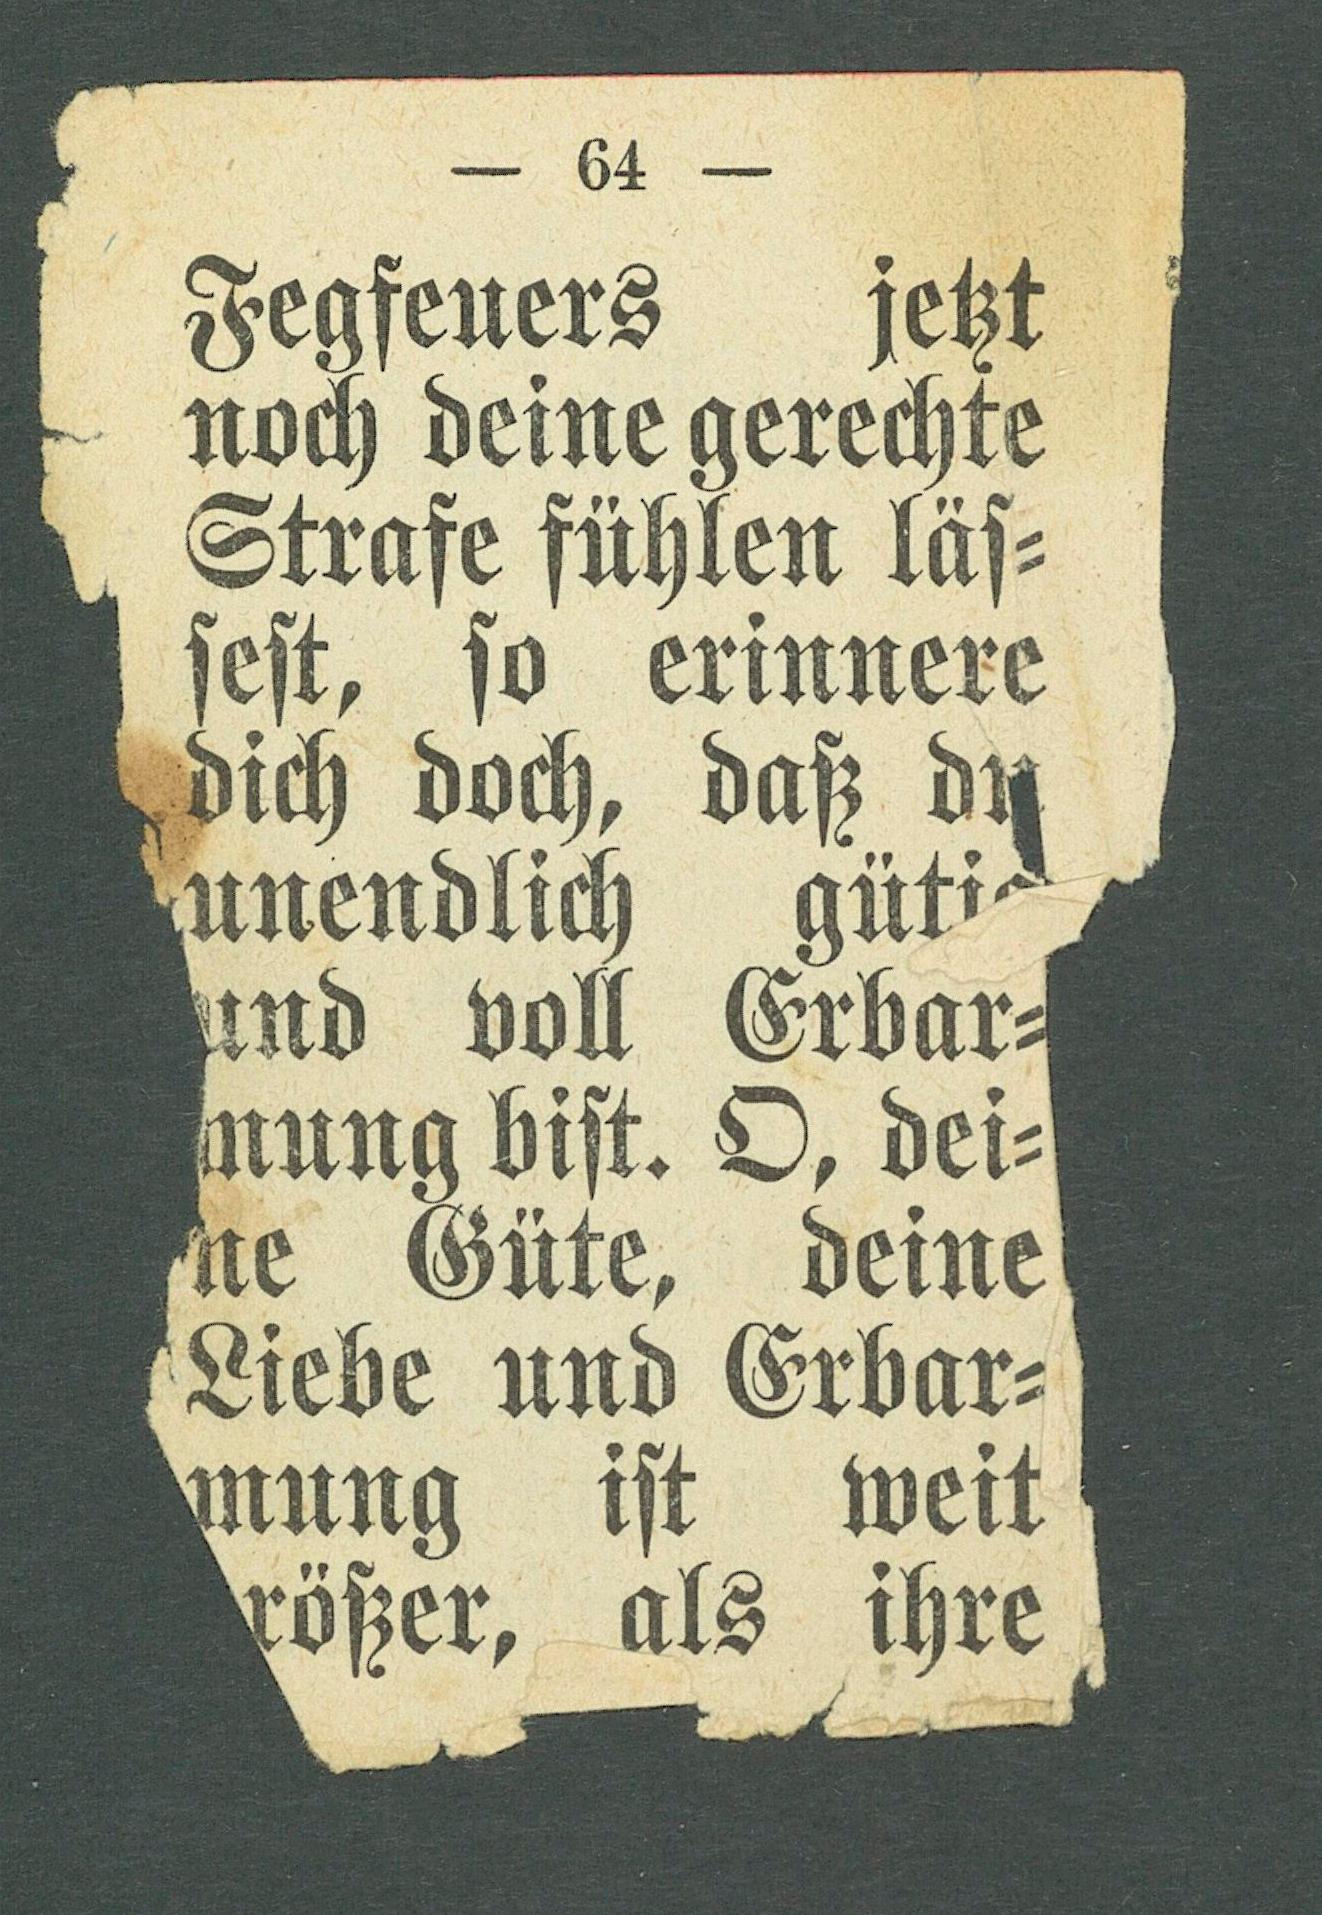 — 64 —
Fegfeuers jetzt
noch deine gerechte
Strafe fühlen läs-
sest, so erinnere
dich doch, daß du
unendlich gütig
und voll Erbar-
mung bist. O, dei-
ne Güte, deine
Liebe und Erbar-
mung ist weit
rößer, als ihre